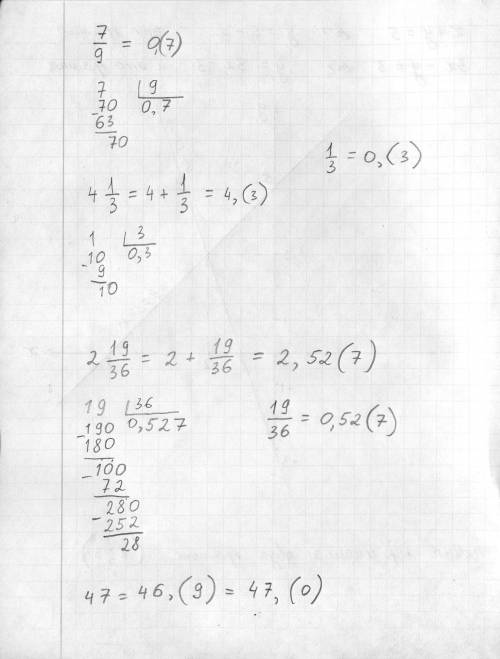 7/9 = 0,(7)
7 | 9
-70 | 0,7
63
70
1/3 = 0,(3)
4 1/3 = 4 + 1/3 = 4,(3)
1 | 3
-10 | 0,3
9
10
2 19/36 = 2 + 19/36 = 2,52(7)
19 | 36
-190 | 0,527
180
-100
72
-280
252
28
19/36 = 0,52(7)
47 = 46,(9) = 47,(0)